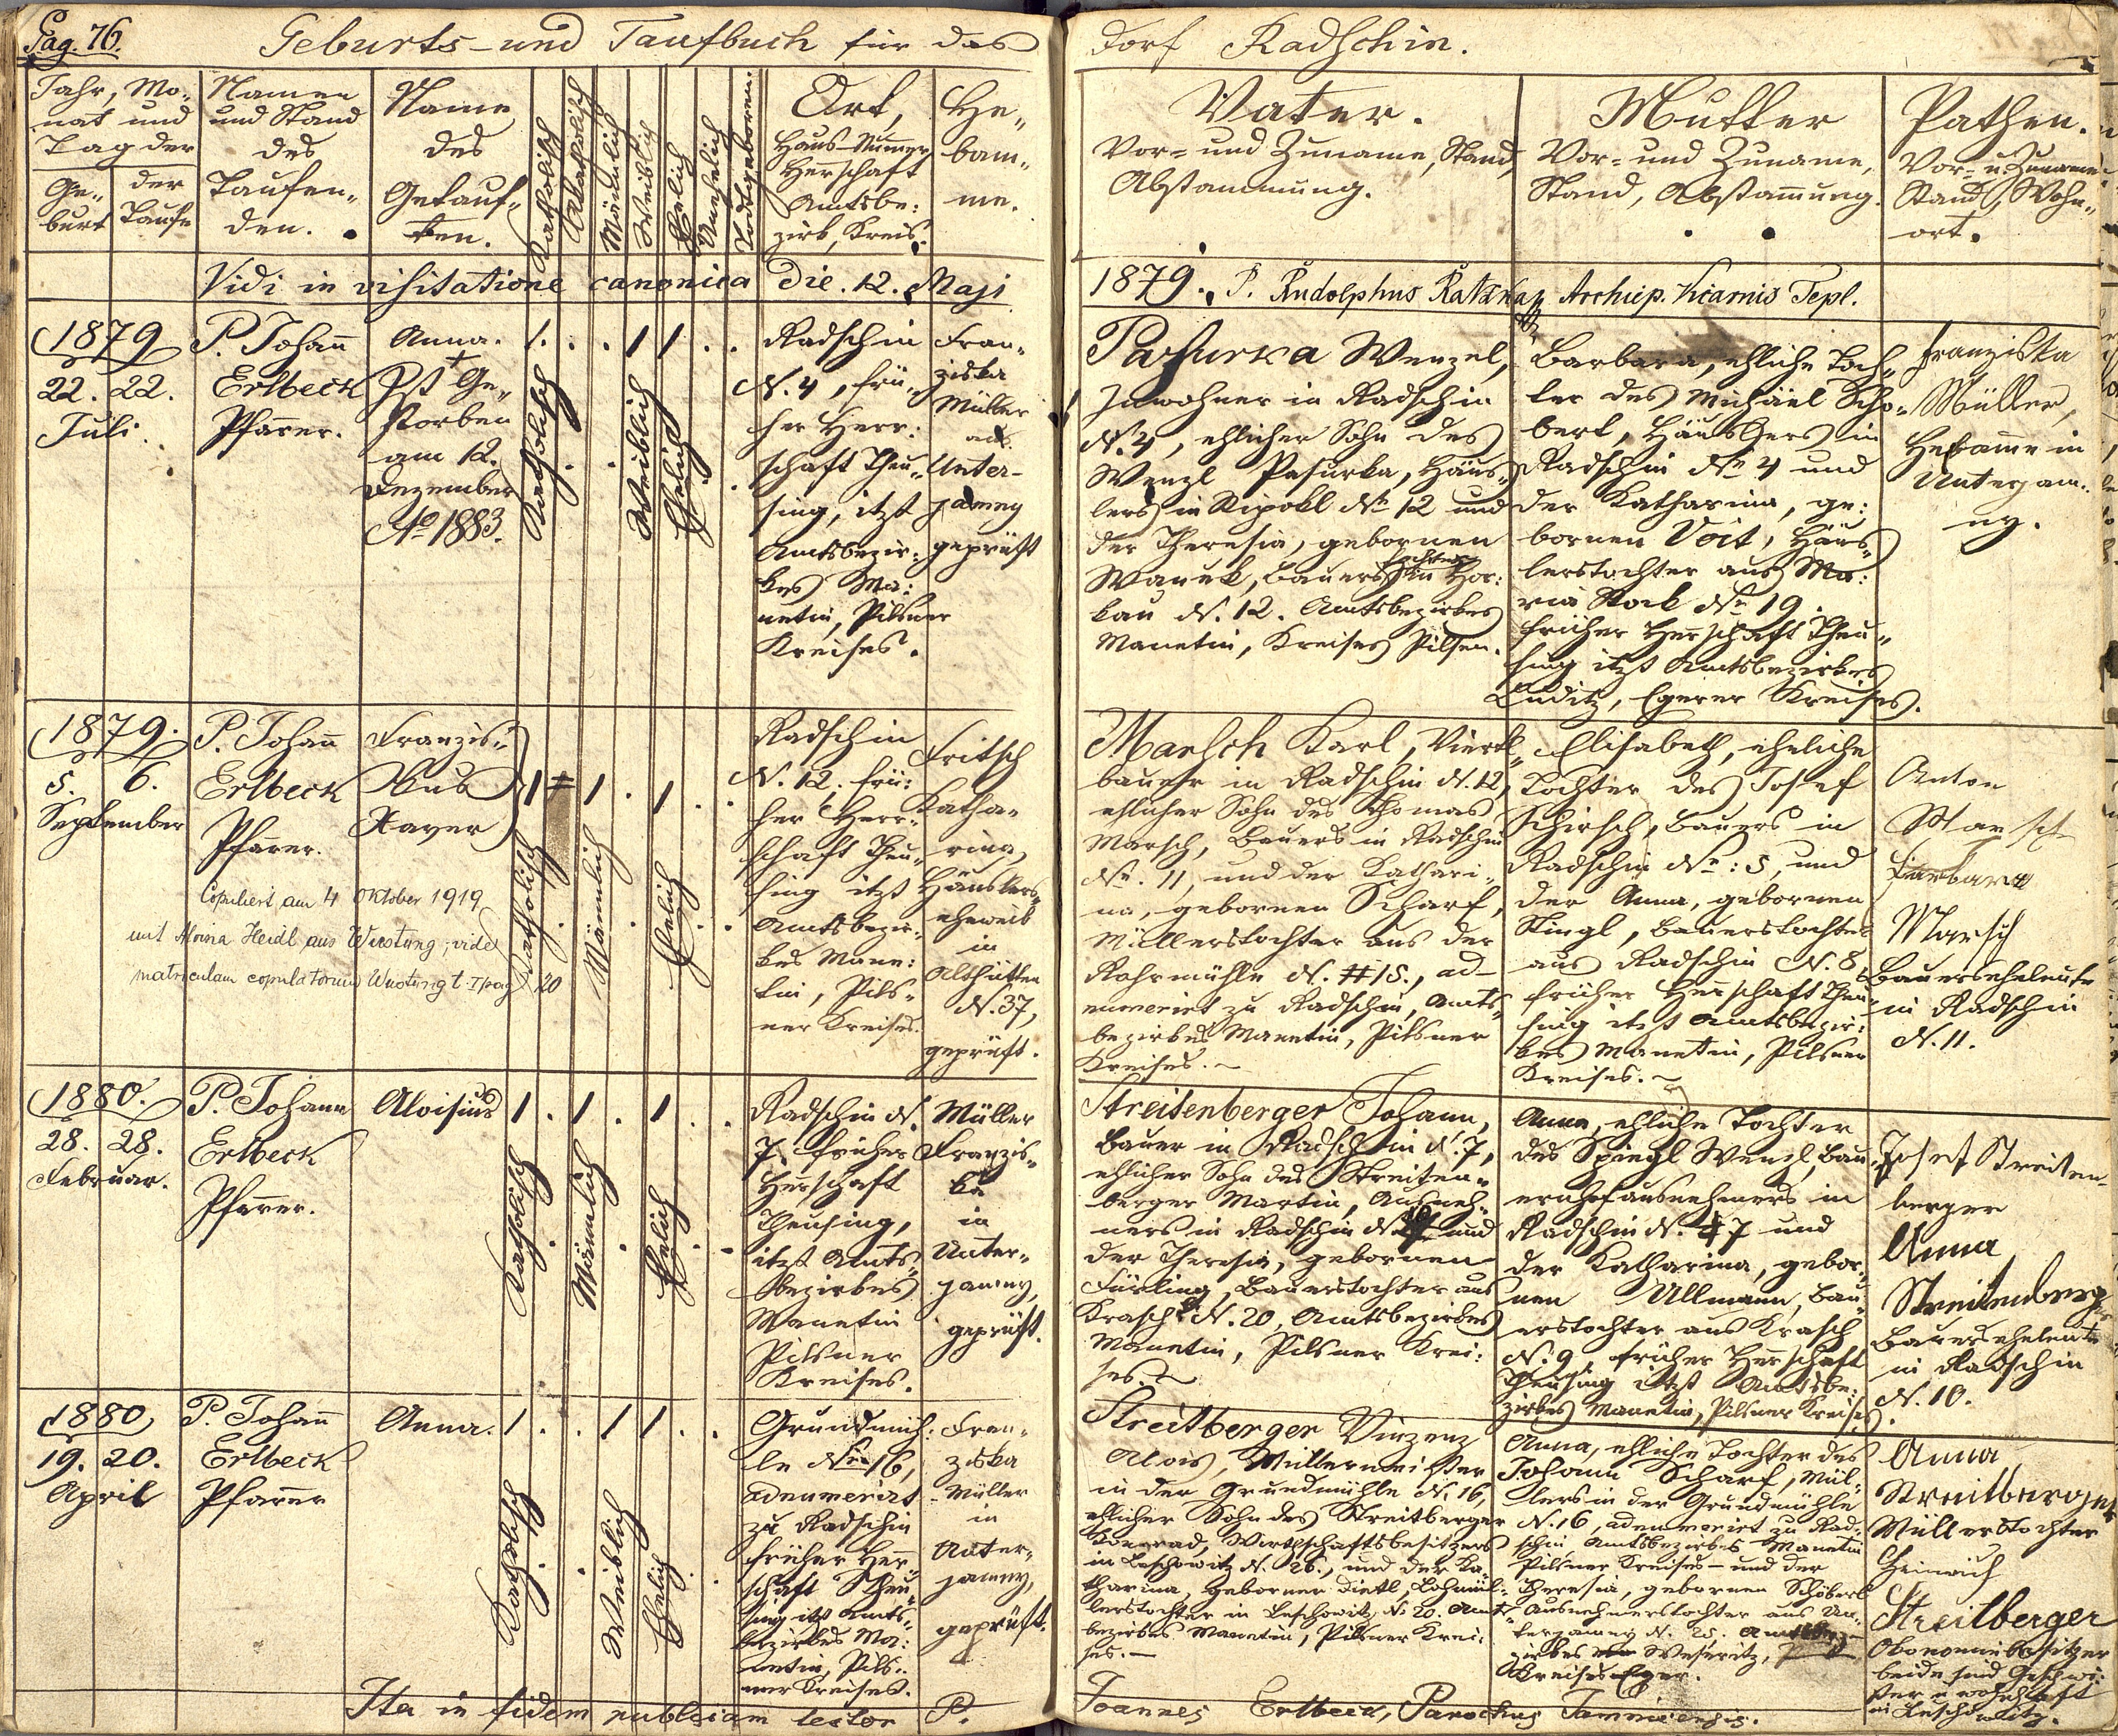 Pag. 76.
Geburts- und Taufbuch für das
Dorf Radschin.
Jahr, Mo-
nat und
Tag der
Ge-
burt
der
Taufe
Namen
und Stand
des
Taufen-
den.
Name
des
Getauf-
ten.
Katholisch
Akatholisch
Männlich
Weiblich
Ehelich
Unehelich
Todtgeboren.
Ort,
Haus-Numer
Herschaft
Amtsbe:
zirk, Kreis.
He-
bam-
me.
Vater.
Vor- und Zuname, Stand,
Abstammung.
Mutter
Vor- und Zuname,
Stand, Abstamung.
Pathen.
Vor- u. Zuname
Stand, Wohn-
ort.
Vidi in visitatione canonica die. 12. Maji
1879. P. Rudolphus Archiep. Vicarius Tepl.
1879
22. 22.
Juli.
P. Johann
Erlbeck
Pfarrer.
Anna.
+
Ist Ge-
storben
am 12.
Dezember
Ao 1883.
1 . . . 1 1 . .
Katholisch
Weiblich
Ehelich
Radschin
N. 4, frü-
her Herr-
schaft Theu-
sing, itzt
Amtsbezir-
kes Ma:
netin, Pilsner
Kreises.
Fran-
ziska
Müller
aus
Unter-
jamny
geprüft
Pasurka Wenzel,
Inwohner in Radschin
No 4, ehlicher Sohn des
Wenzl Pasurka, Häus-
lers in Ripokl No 12 und
der Theresia, gebornen
Wanek, Bauerstochter in Hor-
kau N. 12. Amtsbezirkes
Manetin, Kreises Pilsen.
Barbara, ehliche Toch-
ter des Michäel Scho-
bert, Häuslers in
Radschin No 4 und
der Katharina, ge:
bornen Voit, Häus-
lerstochter aus Ma:
ria Stock No 19.
früher Herschaft Theu-
sing itzt Amtsbezirkes
Luditz, Egerer Kreises.
Franziska
Müller,
Hebamme in
Unterjam-
ny.
1879.
5. 6.
September
P. Johann
Erlbeck
Pfarrer.
Franzis-
kus
Xaver
1 1 . 1 . .
Katholisch
Männlich
Ehelich
Copuliert am 4 Oktober 1919
mit Aloisia Heidl aus Wustung; vide
matriculam copulatorum Wustung t. I pag 20
Radschin
N. 12, frü:
her Herr-
schaft Theu-
sing itzt
Amtsbezir-
kes Mane:
tin, Pils-
ner Kreises.
Fritsch
Katha-
rina,
Häuslers-
eheweib
in
Althütten
N. 37,
geprüft.
Marsch Karl, Viertl-
bauer in Radschin N. 12,
ehlicher Sohn des Thomas
Marsch, Bauers in Radschin
No. 11, und der Kathari-
na, gebornen Scharf,
Müllerstochter aus der
Rohrmühle N. 15., ad-
numerirt zu Radschin, Amts-
bezirkes Manetin, Pilsner
Kreises.
Elisabeth, eheliche
Tochter des Josef
Schirsch, Bauers in
Radschin No: 5, und
der Anna, gebornen
Stingl, Bauerstochter
aus Radschin N. 8
früher Herschaft Theu-
sing itzt Amtsbezir:
kes Manetin, Pilsner
Kreises.
Anton
Marsch
Barbara
Marsch
Bauerseheleute
in Radschin
N. 11.
1880.
28. 28.
Februar.
P. Johann
Erlbeck
Pfarrer.
Aloisius
1 . 1 . 1 . .
Katholisch
Männlich
Ehelich
Radschin N.
7. früher
Herschaft
Theusing,
itzt Amts-
bezirkes
Manetin
Pilsner
Kreises.
Müller
Franzis-
ka
in
Unter-
jamny,
geprüft.
Streitenberger Johann,
Bauer in Radschin N. 7,
ehlicher Sohn des Streiten-
berger Martin, Ausneh-
mers in Radschin N. und
der Theresia, gebornen
Fürling, Bauerstochter aus
Krasch N. 20, Amtsbezirkes
Manetin, Pilsner Krei:
ses.
Anna, ehliche Tochter
des Spiegl Wenzl, Bau-
ernhofausnehmers in
Radschin N. 7 und
der Katharina, gebor-
nen Ullmann, Bau-
erstochter aus Krasch
N. 9, früher Herschaft
Theusing itzt Amtsbe:
zirkes Manetin, Pilsner Kreises.
Josef Streiten-
berger
Anna
Streitenberger
Bauerseheleute
in Radschin
N. 10.
1880
19. 20.
April
P. Johann
Erlbeck
Pfarrer
Anna.
1 . . 1 1 . .
Katholisch
Weiblich
Ehelich
Grundmüh:
le Nro 16,
adnumerirt
zu Radschin
früher Herr
schaft Theu
sing itzt Amts-
bezirkes Ma:
netin, Pils-
ner Kreises.
Fran-
ziska
Müller
in
Unter-
jamny,
geprüft.
Streitberger Vinzenz
Alois, Müllermeister
in der Grundmühle N. 16,
ehlicher Sohn des Streitberger
Konrad, Wirthschaftsbesitzers
in Leschowitz N. 26., und der Ka
tharina, geborner Dietl, Lohmül-
lerstochter in Leschowitz N. 20. Amts-
bezirkes Manetin, Pilsner Krei:
ses.
Anna, ehliche Tochter des
Johann Scharf, Mül-
lers in der Grundmühle
N. 16, adnumerirt zu Rad-
schin, Amtsbezirkes Manetin
Pilsner Kreises - und der
Theresia, gebornen Schöberl
Ausnehmerstochter aus Un-
terjamny N. 25. Amtsbe-
zirkes Weseritz,
Kreises Eger.
Anna
Streitberger
Müllerstochter
Heinrich
Streitberger
Ökonomiebesitzer
beide sind Geschwi-
ster wohnhaft
in Leschowitz.
Ita in fidem publicam testor P.
Joannes Erlbeck, Parochus Jamnicensis.